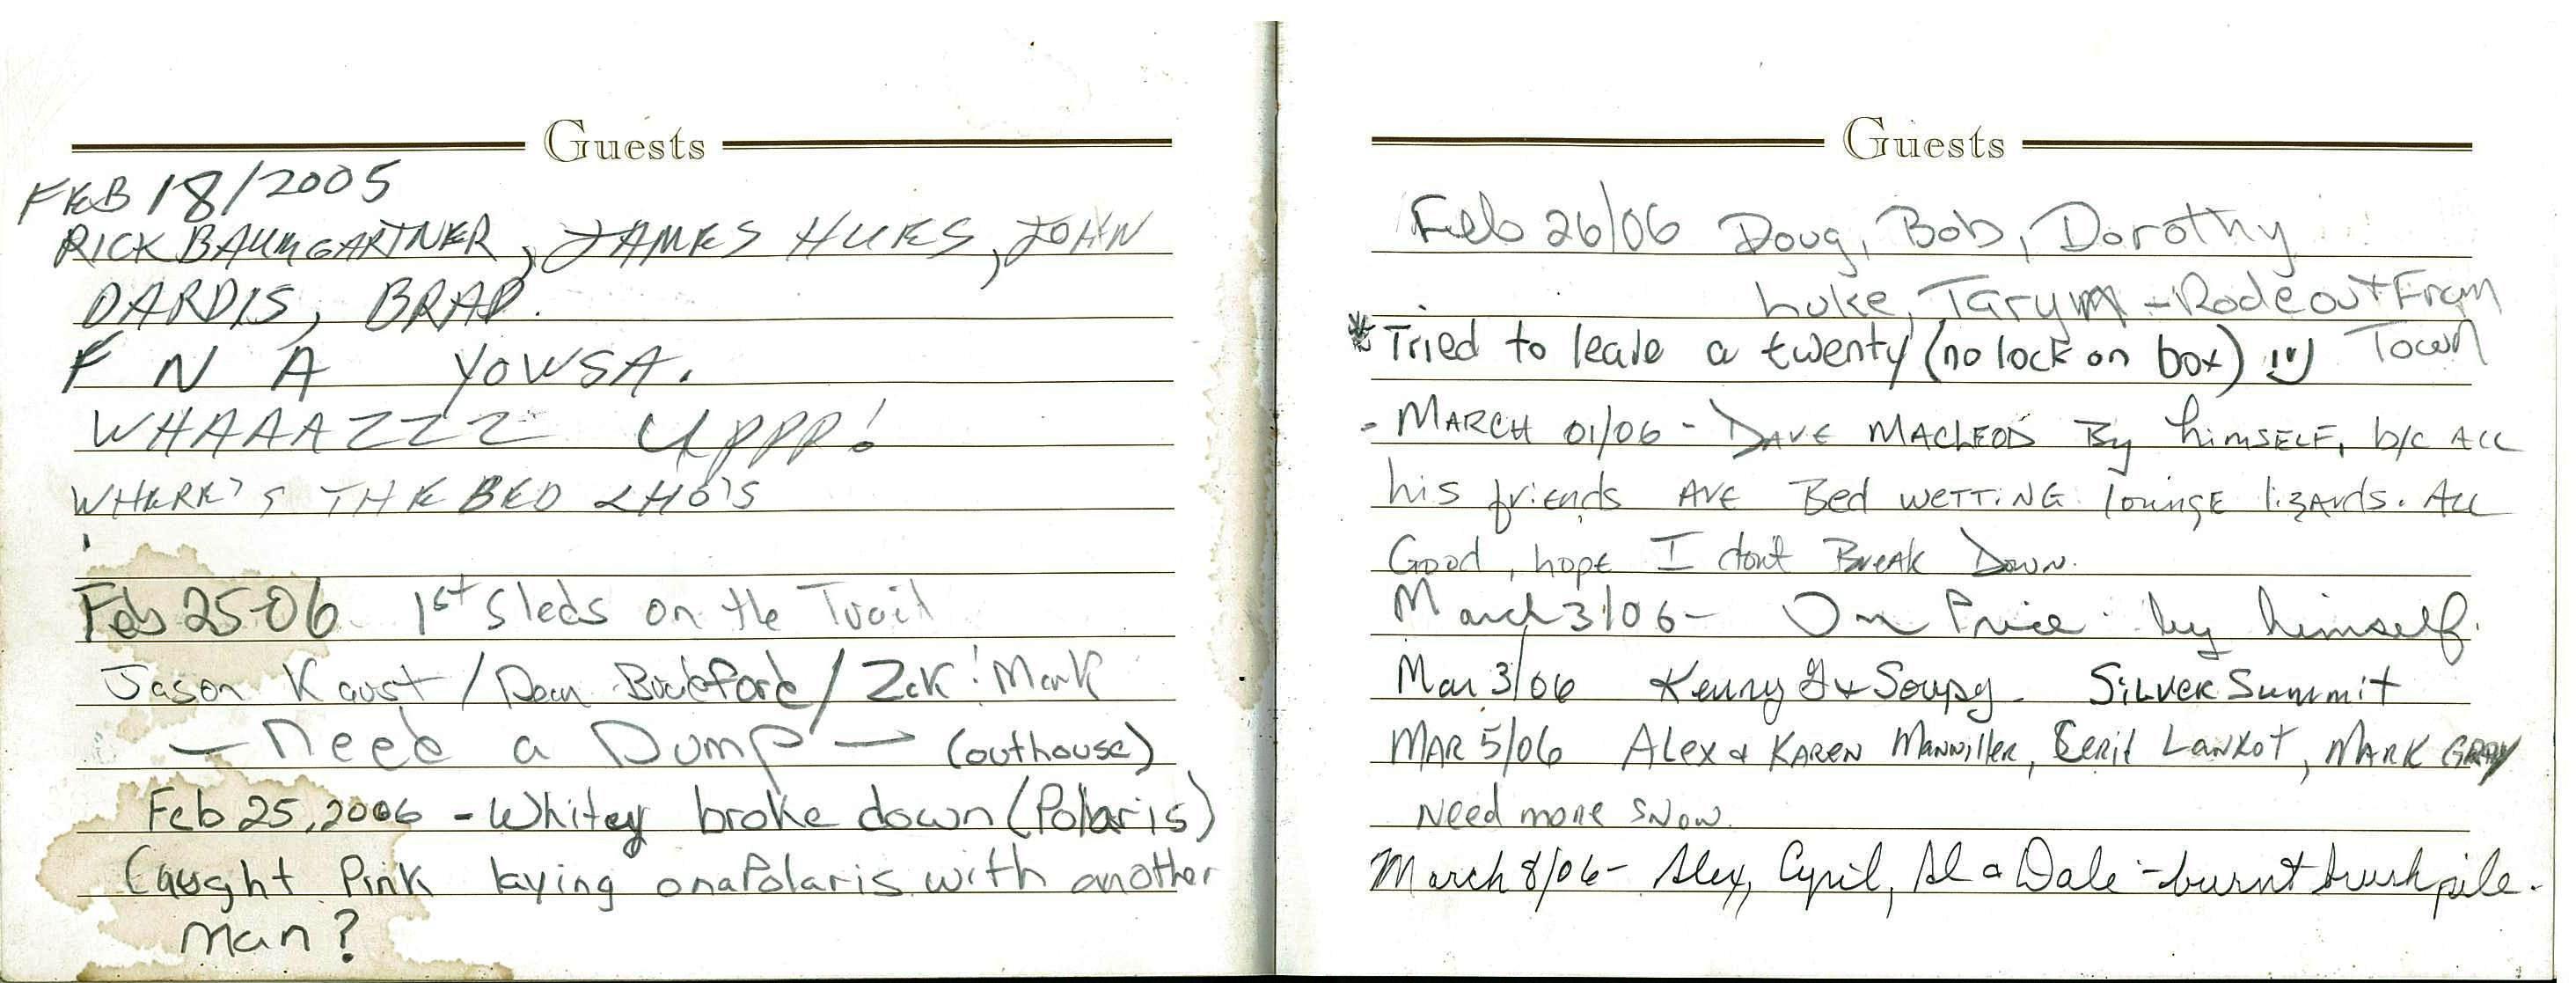 Guests
FEB 18/2005
RICK BAUMGARTNER, JAMES HUES, JOHN
DARDIS, BRAD.
F N A YOWSA.
WHAAAZZZ UPPP!
WHERE'S THE BED
Feb 25-06 1st Sleds on the Trail
Jason / Dean / Zak ! Mark
— Need a Dump — (outhouse)
Feb 25, 2006 - Whitey broke down (Polaris)
Caught Pink laying on a Polaris with another
man?
Guests
Feb 26/06 Doug, Bob, Dorothy
Luke, Taryn - Rode out From
Town
* Tried to leave a twenty (no lock on box)
- MARCH 01/06 - DAVE MACLEOD By himSELF, b/c ALL
his friends ARE Bed WETTING lounge lizards. ALL
Good, hope I dont Break Down.
March 3/06 - Price by himself.
Mar 3/06 Kenny G + Soupy - SILVER Summit
MAR 5/06 Alex & KAREN Manwiller, MARK GRAY
Need more snow.
March 8/06 - Alex, Cyril, Al & Dale - burnt brush pile.